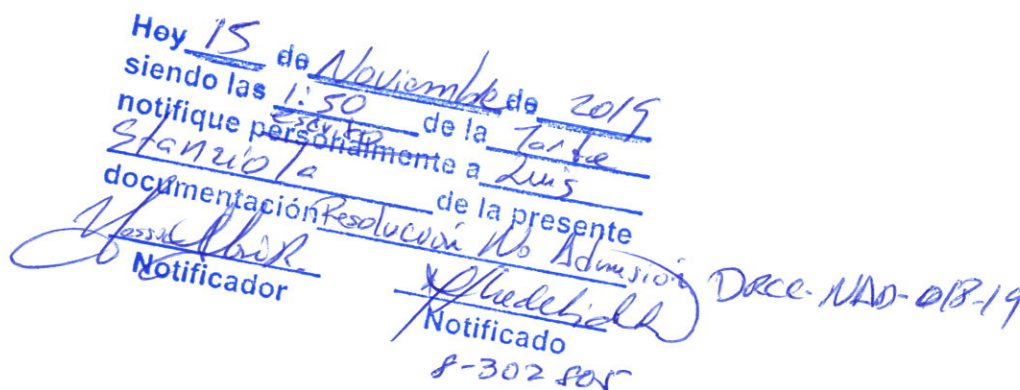 Hoy 15 de Noviembre de 2019
siendo las 1:50 de la Tarde
Escrito
notifique personalmente a Luis
Stanziola de la presente
documentación Resolución No Admisión DRCC-NAD-018-19
Notificador
Notificado
8-302 805